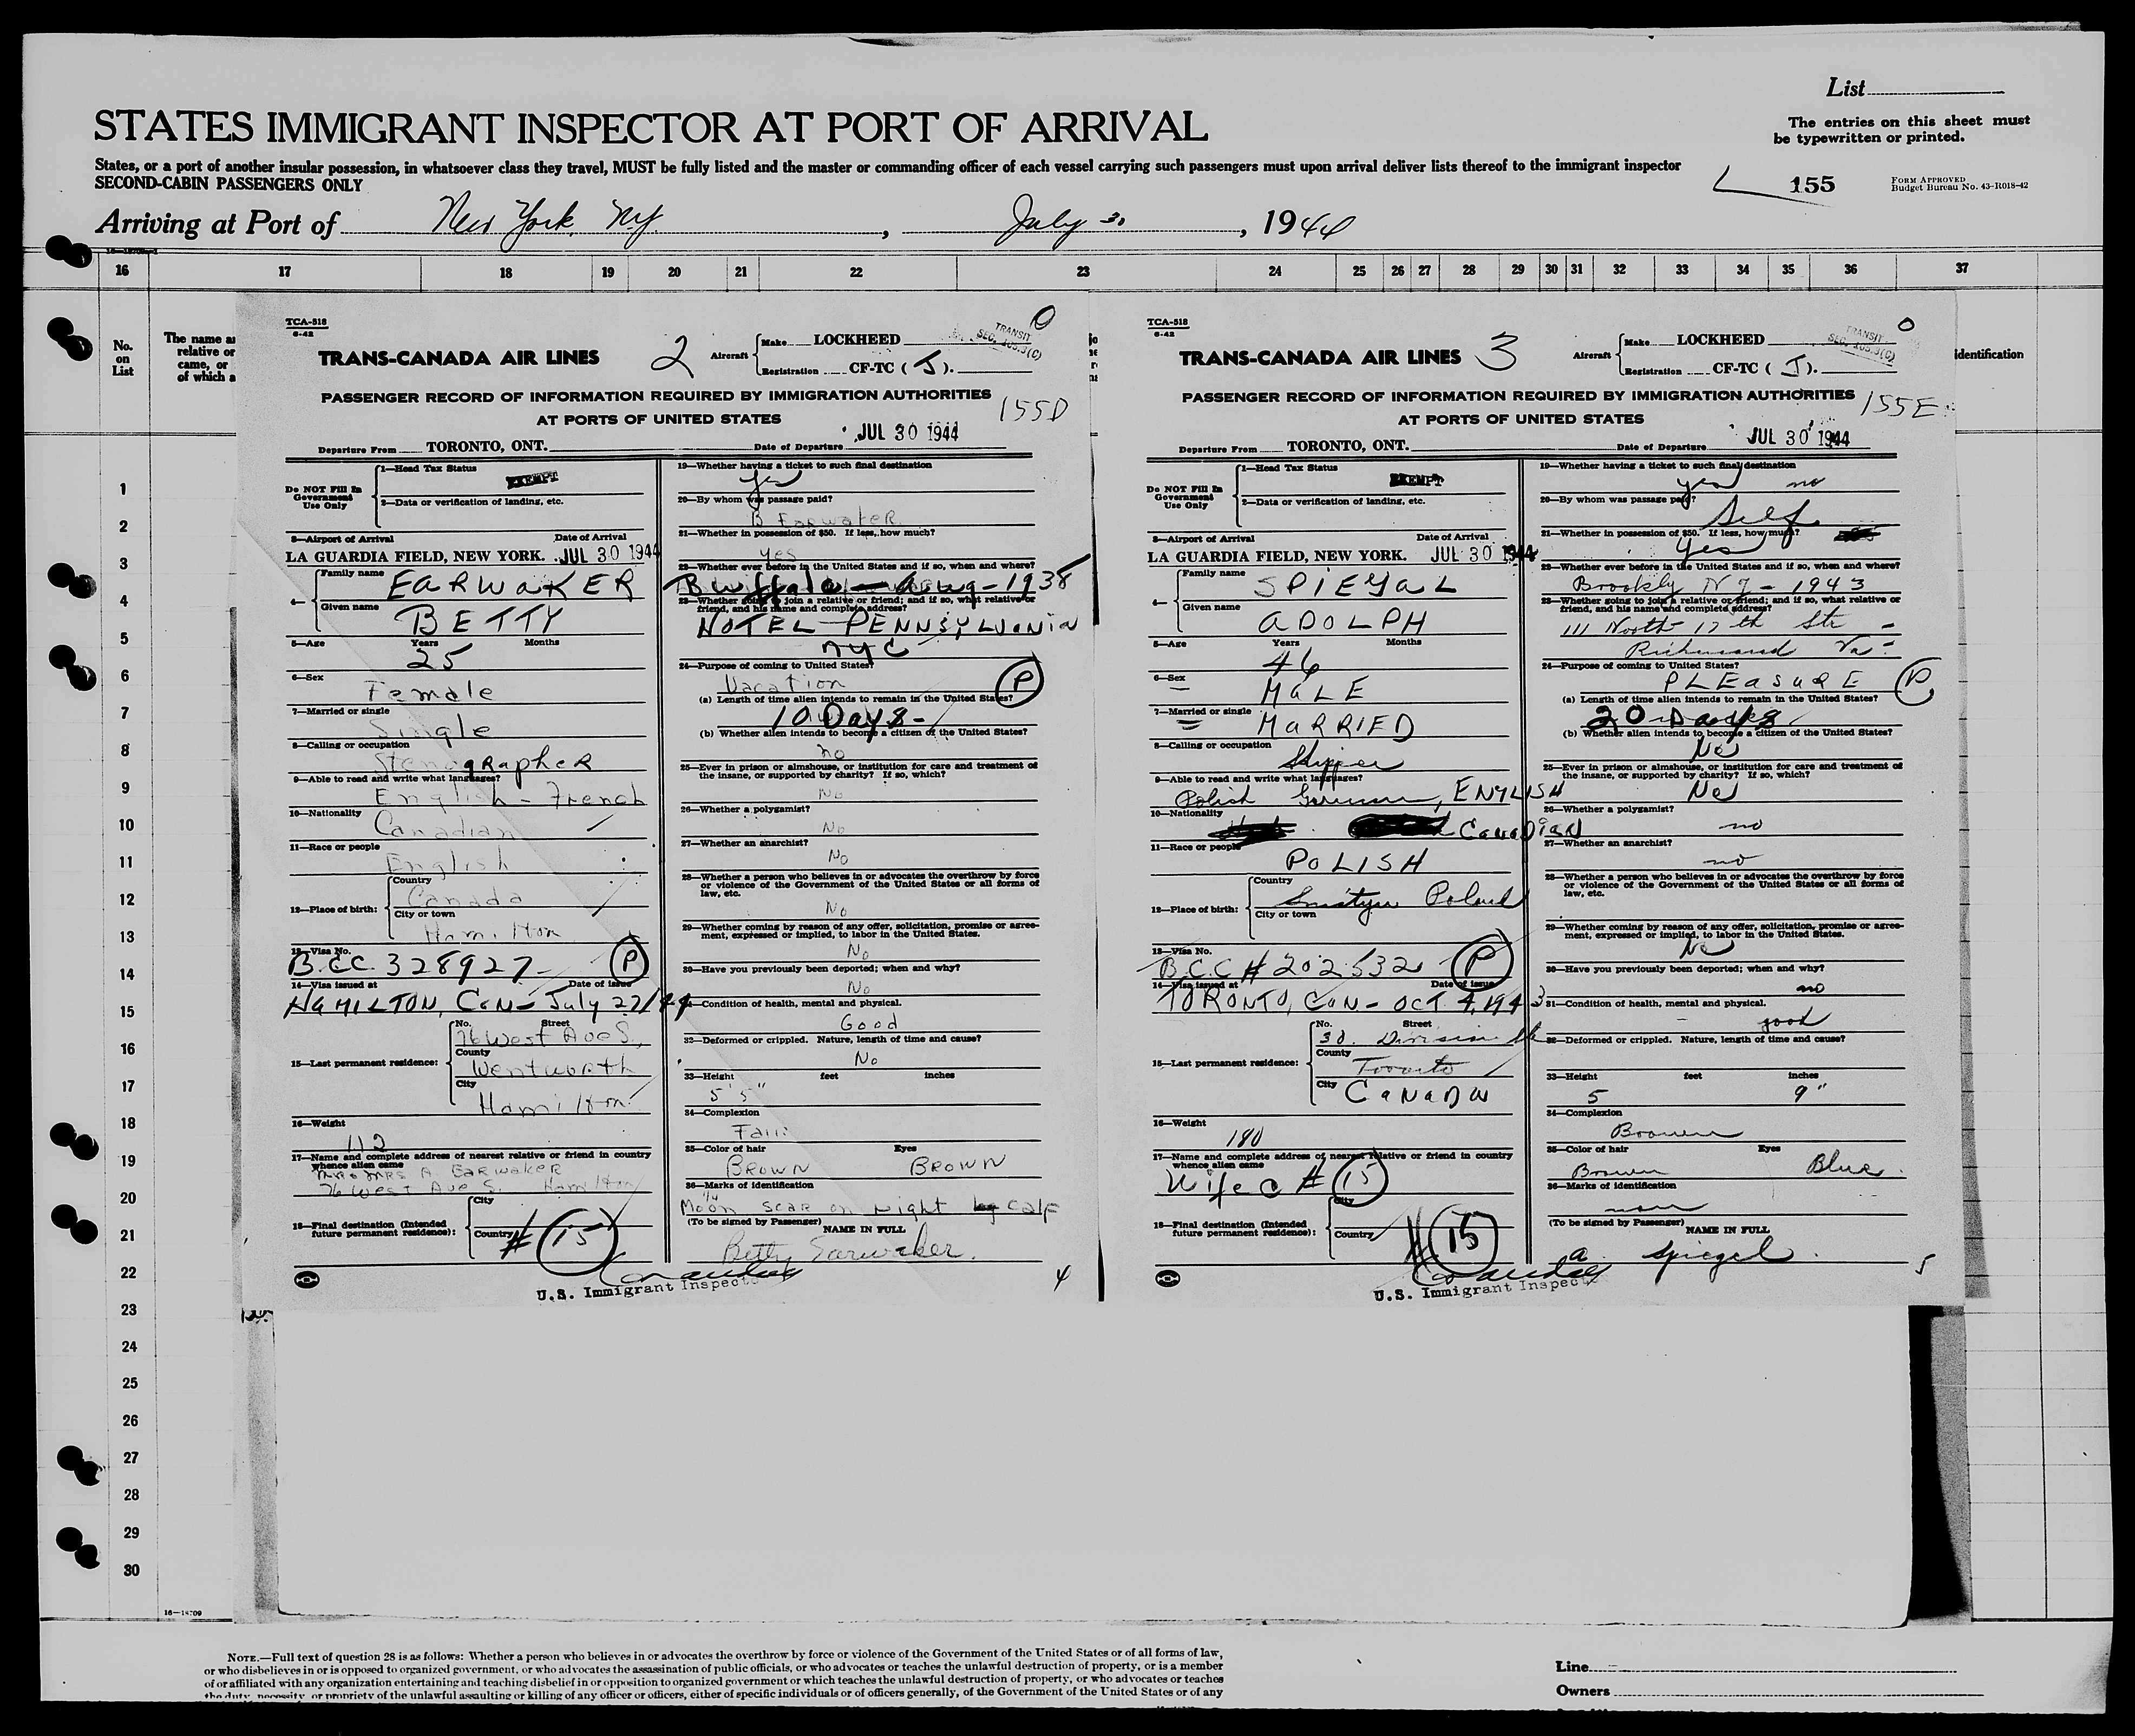 List
STATES IMMIGRANT INSPECTOR AT PORT OF ARRIVAL
The entries on this sheet must
be typewritten or printed.
States, or a port of another insular possession, in whatsoever class they travel, MUST be fully listed and the master or commanding officer of each vessel carrying such passengers must upon arrival deliver lists thereof to the immigrant inspector
SECOND-CABIN PASSENGERS ONLY
155
FORM APPROVED
Budget Bureau No. 43-R018-42
Arriving at Port of New York, NY, July 30, 1944
16 17 18 19 20 21 22 23 24 25 26 27 28 29 30 31 32 33 34 35 36 37
No.
on
List
The name a
relative or
came, or
of which a
identification
1
2
3
4
5
6
7
8
9
10
11
12
13
14
15
16
17
18
19
20
21
22
23
24
25
26
27
28
29
30
16—18709
TCA-518
6-42
TRANS-CANADA AIR LINES 2
Aircraft Make LOCKHEED
Registration CF-TC (J).
TRANSIT
PASSENGER RECORD OF INFORMATION REQUIRED BY IMMIGRATION AUTHORITIES
AT PORTS OF UNITED STATES
155D
Departure From TORONTO, ONT. Date of Departure JUL 30 1944
Do NOT Fill In
Government
Use Only
1—Head Tax Status EXEMPT
2—Data or verification of landing, etc.
3—Airport of Arrival Date of Arrival
LA GUARDIA FIELD, NEW YORK. JUL 30 1944
4— Family name EARWAKER
Given name BETTY
5—Age Years Months
25
6—Sex Female
7—Married or single
Single
8—Calling or occupation
Stenographer
9—Able to read and write what languages?
English - French
10—Nationality
Canadian
11—Race or people
English
12—Place of birth: Country
Canada
City or town
Hamilton
13—Visa No.
B.C.C. 328927 P
14—Visa issued at Date of issue
HAMILTON, CAN- July 27/44
15—Last permanent residence: No. Street
76 West Ave S.,
County
Wentworth
City
Hamilton
16—Weight
112
17—Name and complete address of nearest relative or friend in country
whence alien came
MR & MRS A. EARWAKER
76 West Ave S. Hamilton
18—Final destination (Intended
future permanent residence): City
Country # 15
19—Whether having a ticket to such final destination
Yes
20—By whom was passage paid?
B EarwakeR
21—Whether in possession of $50. If less, how much?
yes
22—Whether ever before in the United States and if so, when and where?
Buffalo - Aug - 1938
23—Whether going to join a relative or friend; and if so, what relative or
friend, and his name and complete address?
HOTEL PENNSYLVANIA
NYC
24—Purpose of coming to United States?
Vacation P
(a) Length of time alien intends to remain in the United States?
10 Days-
(b) Whether alien intends to become a citizen of the United States?
no
25—Ever in prison or almshouse, or institution for care and treatment of
the insane, or supported by charity? If so, which?
No
26—Whether a polygamist?
No
27—Whether an anarchist?
No
28—Whether a person who believes in or advocates the overthrow by force
or violence of the Government of the United States or all forms of
law, etc.
No
29—Whether coming by reason of any offer, solicitation, promise or agree-
ment, expressed or implied, to labor in the United States.
No
30—Have you previously been deported; when and why?
No
31—Condition of health, mental and physical.
Good
32—Deformed or crippled. Nature, length of time and cause?
No
33—Height feet inches
5' 5"
34—Complexion
Fair
35—Color of hair Eyes
BROWN BROWN
36—Marks of identification
1/4 Moon scar on right calf
(To be signed by Passenger) NAME IN FULL
Betty Earwaker.
U.S. Immigrant Inspector
4
TCA-518
6-42
TRANS-CANADA AIR LINES 3
Aircraft Make LOCKHEED
Registration CF-TC (J).
TRANSIT
PASSENGER RECORD OF INFORMATION REQUIRED BY IMMIGRATION AUTHORITIES
AT PORTS OF UNITED STATES
155E
Departure From TORONTO, ONT. Date of Departure JUL 30 1944
Do NOT Fill In
Government
Use Only
1—Head Tax Status EXEMPT
2—Data or verification of landing, etc.
3—Airport of Arrival Date of Arrival
LA GUARDIA FIELD, NEW YORK. JUL 30 1944
4— Family name SPIEGAL
Given name ADOLPH
5—Age Years Months
46
6—Sex MALE
7—Married or single MARRIED
8—Calling or occupation
9—Able to read and write what languages?
Polish German, ENGLISH
10—Nationality
Canadian
11—Race or people
POLISH
12—Place of birth: Country
Poland
City or town
13—Visa No.
B.C.C # 202532 P
14—Visa issued at Date of issue
TORONTO, CAN - OCT. 4, 1943
15—Last permanent residence: No. Street
38. Division St
County
Toronto
City CANADA
16—Weight
180
17—Name and complete address of nearest relative or friend in country
whence alien came
Wife @ # 15
18—Final destination (Intended
future permanent residence): City
Country # 15
19—Whether having a ticket to such final destination
yes no
20—By whom was passage paid?
Self.
21—Whether in possession of $50. If less, how much?
Yes
22—Whether ever before in the United States and if so, when and where?
Brookly NY - 1943
23—Whether going to join a relative or friend; and if so, what relative or
friend, and his name and complete address?
111 North 17th Str -
Richmond Va-
24—Purpose of coming to United States?
PLEASURE P
(a) Length of time alien intends to remain in the United States?
20 Days
(b) Whether alien intends to become a citizen of the United States?
No
25—Ever in prison or almshouse, or institution for care and treatment of
the insane, or supported by charity? If so, which?
No
26—Whether a polygamist?
no
27—Whether an anarchist?
no
28—Whether a person who believes in or advocates the overthrow by force
or violence of the Government of the United States or all forms of
law, etc.
29—Whether coming by reason of any offer, solicitation, promise or agree-
ment, expressed or implied, to labor in the United States.
No
30—Have you previously been deported; when and why?
no
31—Condition of health, mental and physical.
good
32—Deformed or crippled. Nature, length of time and cause?
33—Height feet inches
5 9"
34—Complexion
Brown
35—Color of hair Eyes
Brown Blue
36—Marks of identification
(To be signed by Passenger) NAME IN FULL
a. Spiegel.
U.S. Immigrant Inspector
5
NOTE.—Full text of question 28 is as follows: Whether a person who believes in or advocates the overthrow by force or violence of the Government of the United States or of all forms of law,
or who disbelieves in or is opposed to organized government, or who advocates the assassination of public officials, or who advocates or teaches the unlawful destruction of property, or is a member
of or affiliated with any organization entertaining and teaching disbelief in or opposition to organized government or which teaches the unlawful destruction of property, or who advocates or teaches
the duty, necessity, or propriety of the unlawful assaulting or killing of any officer or officers, either of specific individuals or of officers generally, of the Government of the United States or of any
Line
Owners